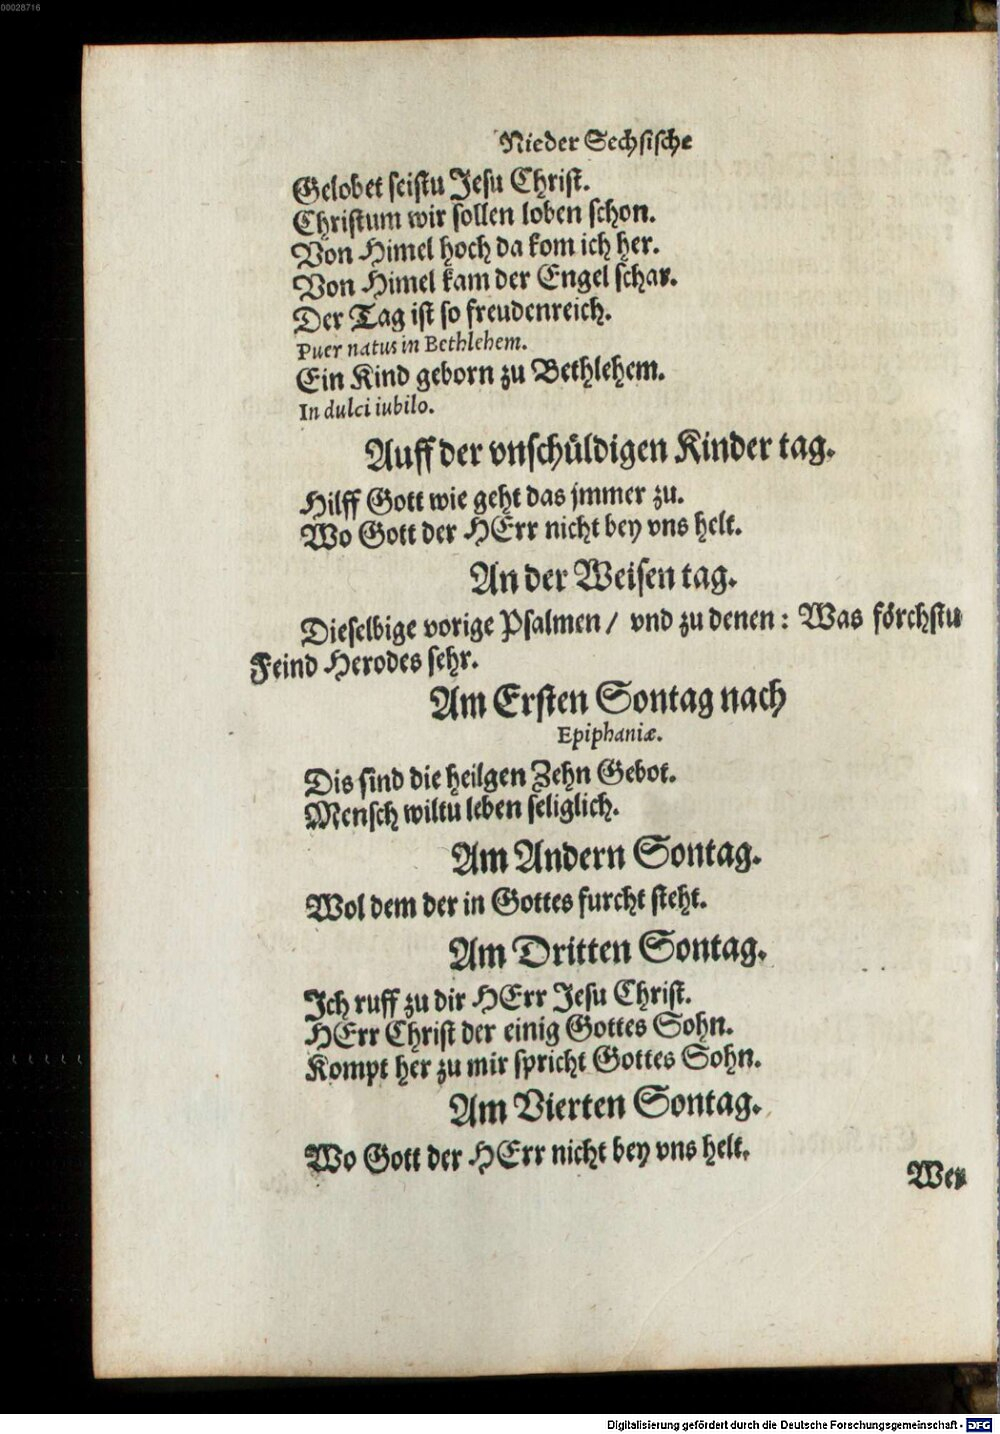 00028716
Nieder Sechsische
Gelobet seistu Jesu Christ.
Christum wir sollen loben schon.
Von Himel hoch da kom ich her.
Von Himel kam der Engel schar.
Der Tag ist so freudenreich.
Puer natus in Bethlehem.
Ein Kind geborn zu Bethlehem.
In dulci iubilo.
Auff der vnschüldigen Kinder tag.
Hilff Gott wie geht das jmmer zu.
Wo Gott der HErr nicht bey vns helt.
An der Weisen tag.
Dieselbige vorige Psalmen / vnd zu denen: Was förchstu
Feind Herodes sehr.
Am Ersten Sontag nach
Epiphaniæ.
Dis sind die heilgen Zehn Gebot.
Mensch wiltu leben seliglich.
Am Andern Sontag.
Wol dem der in Gottes furcht steht.
Am Dritten Sontag.
Ich ruff zu dir HErr Jesu Christ.
HErr Christ der einig Gottes Sohn.
Kompt her zu mir spricht Gottes Sohn.
Am Vierten Sontag.
Wo Gott der HErr nicht bey vns helt.
Wer
Digitalisierung gefördert durch die Deutsche Forschungsgemeinschaft - DFG